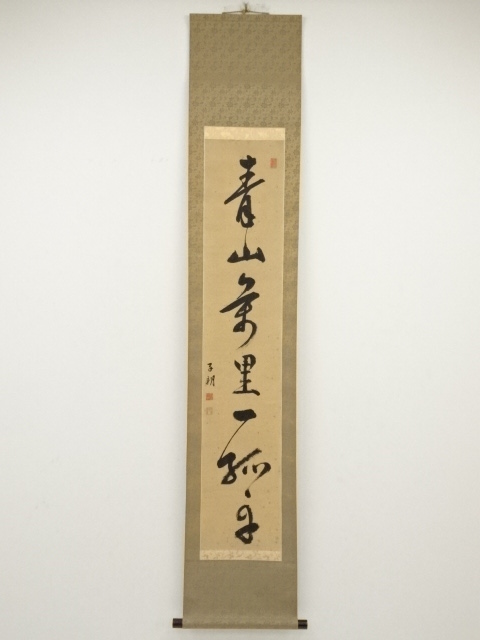 青山萬里一孤舟
子明